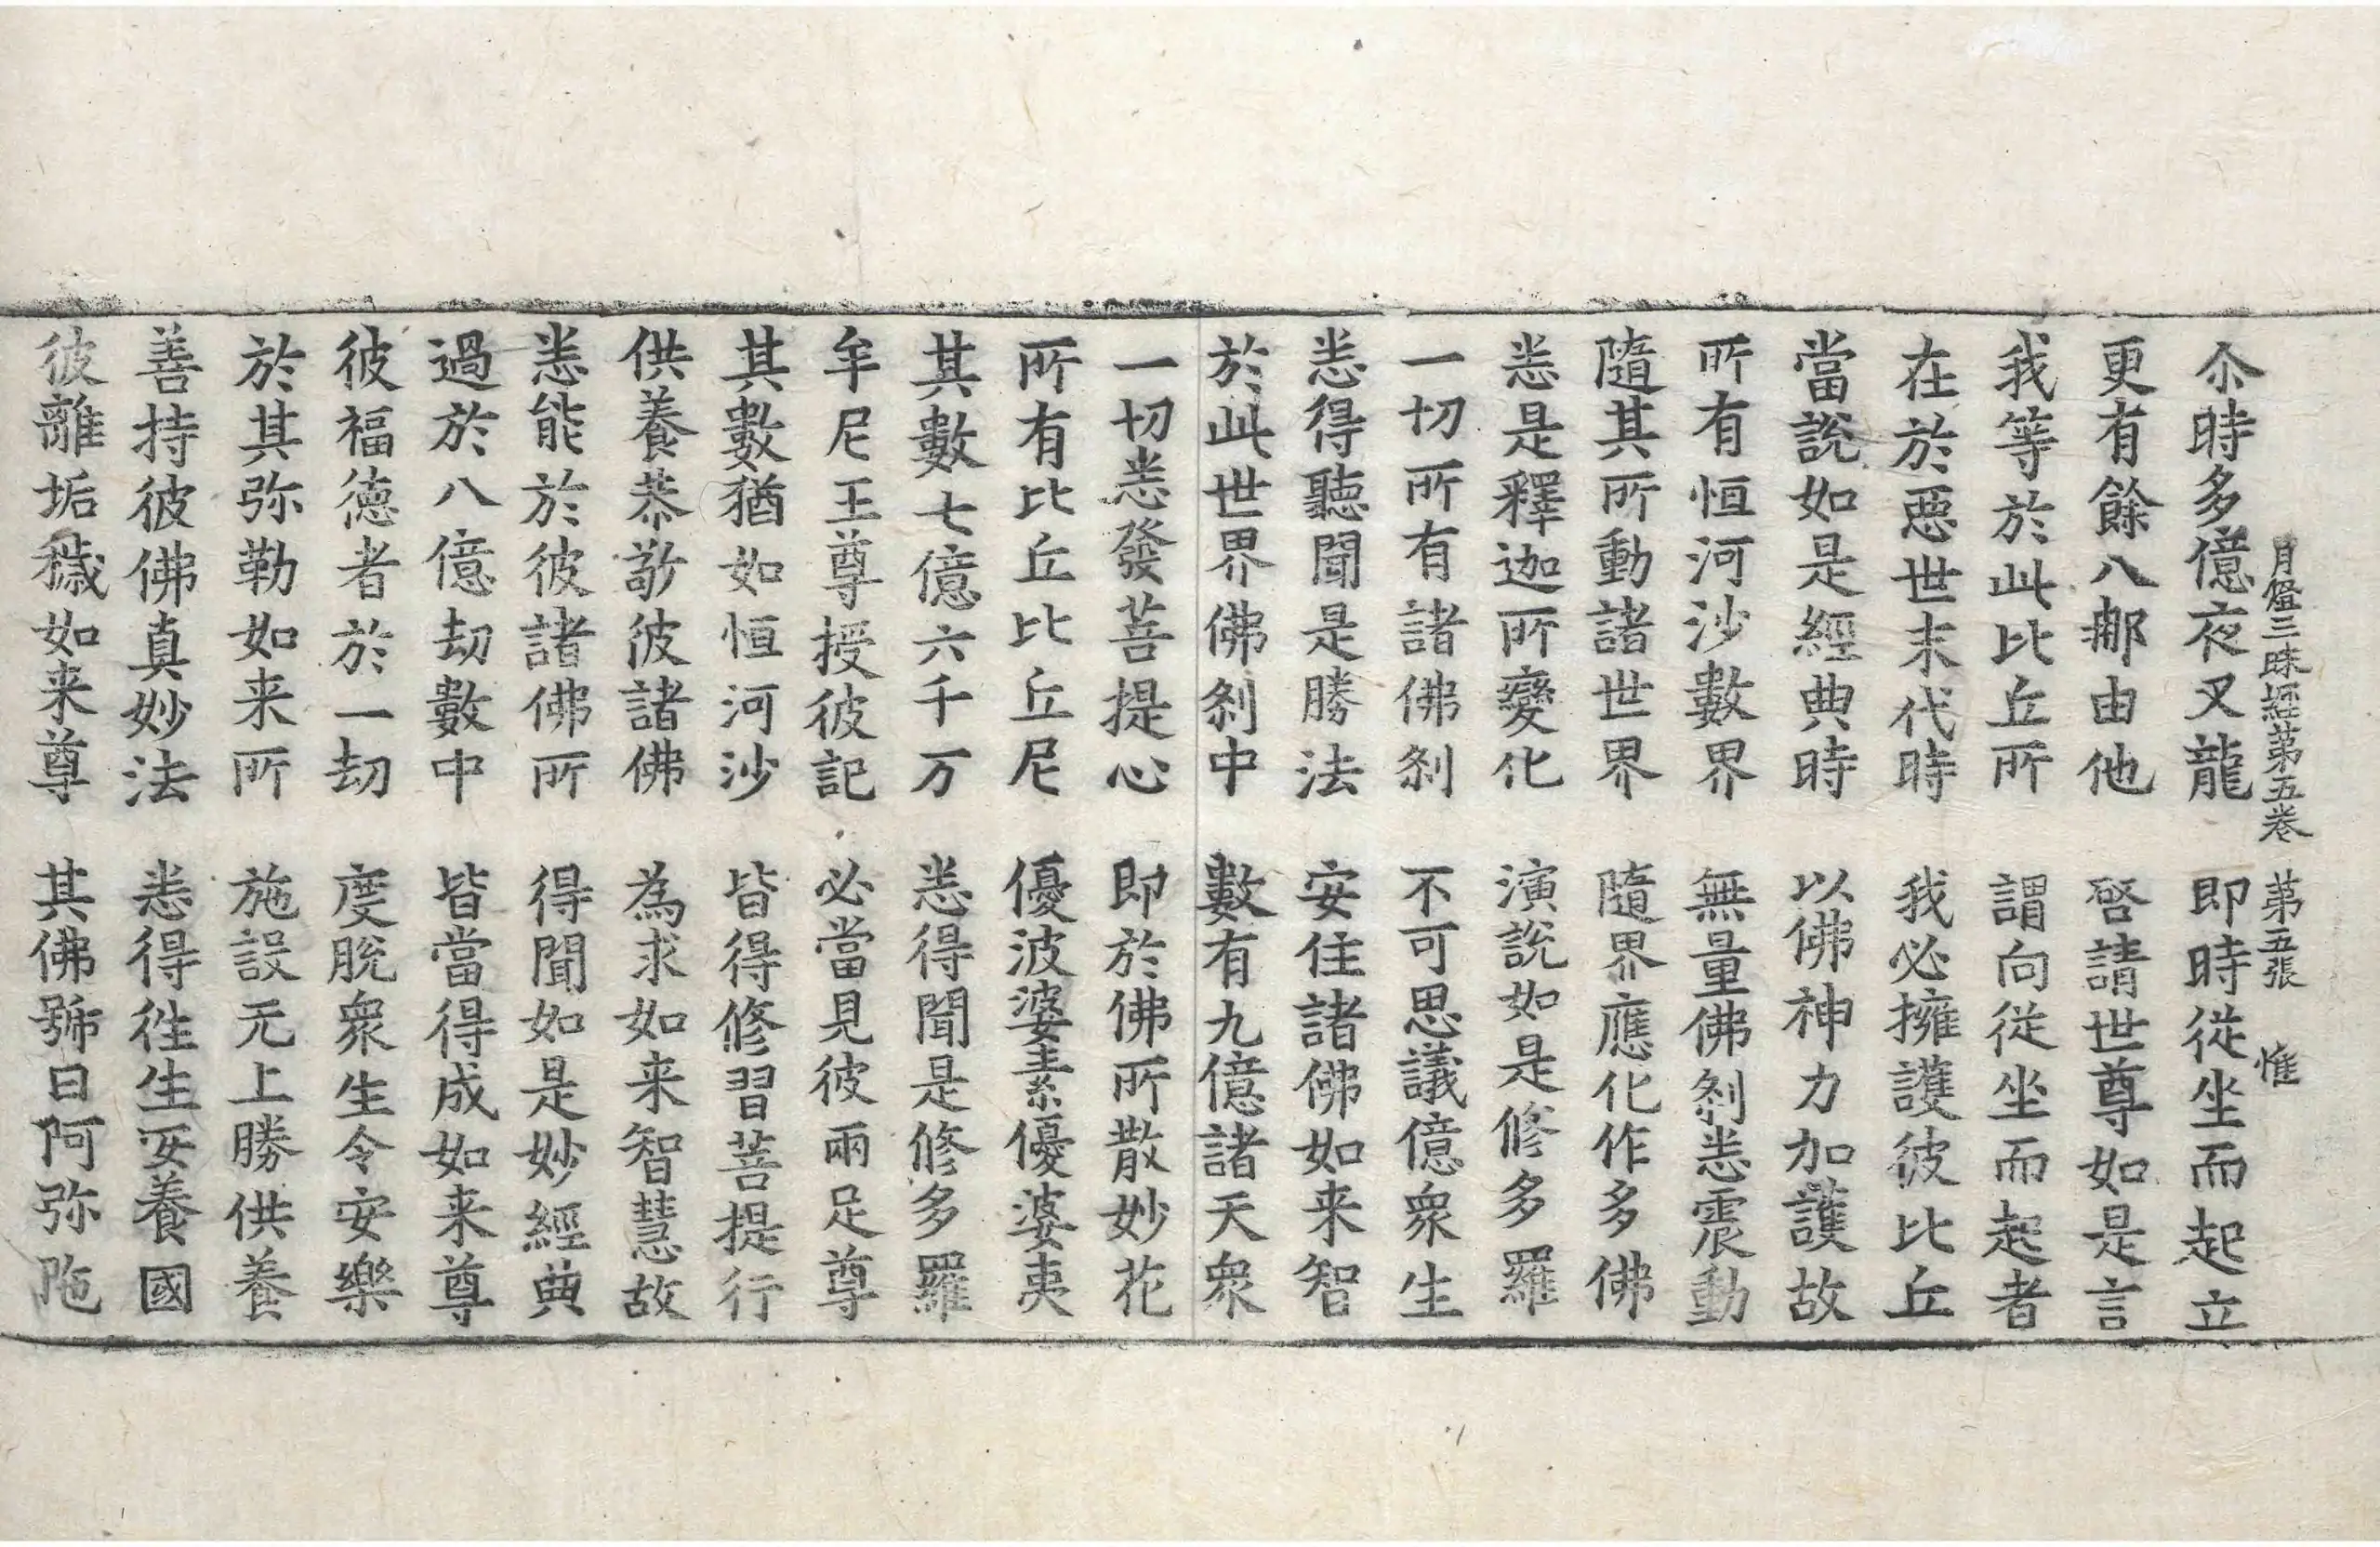 月燈三昧經第五卷 第五張 惟
尒時多億夜叉龍 即時從坐而起立
更有餘八那由他 啓請世尊如是言
我等於此比丘所 謂向從坐而起者
在於惡世末代時 我必擁護彼比丘
當說如是經典時 以佛神力加護故
所有恒河沙數界 無量佛剎悉震動
隨其所動諸世界 隨界應化作多佛
悉是釋迦所變化 演說如是修多羅
一切所有諸佛剎 不可思議億衆生
悉得聽聞是勝法 安住諸佛如来智
於此世界佛剎中 數有九億諸天衆
一切悉發菩提心 即於佛所散妙花
所有比丘比丘尼 優波婆素優婆夷
其數七億六千万 悉得聞是修多羅
牟尼王尊授彼記 必當見彼兩足尊
其數猶如恒河沙 皆得修習菩提行
供養恭敬彼諸佛 為求如来智慧故
悉能於彼諸佛所 得聞如是妙經典
過於八億劫數中 皆當得成如来尊
彼福德者於一劫 度脫衆生令安樂
於其弥勒如来所 施設无上勝供養
善持彼佛真妙法 悉得往生安養國
彼離垢穢如来尊 其佛號曰阿弥陁